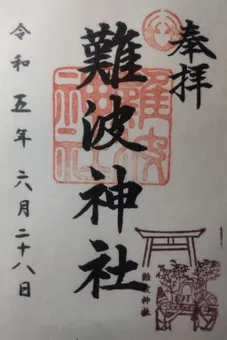 奉拝
難波神社
難波神社
令和五年 六月二十八日
難波神社